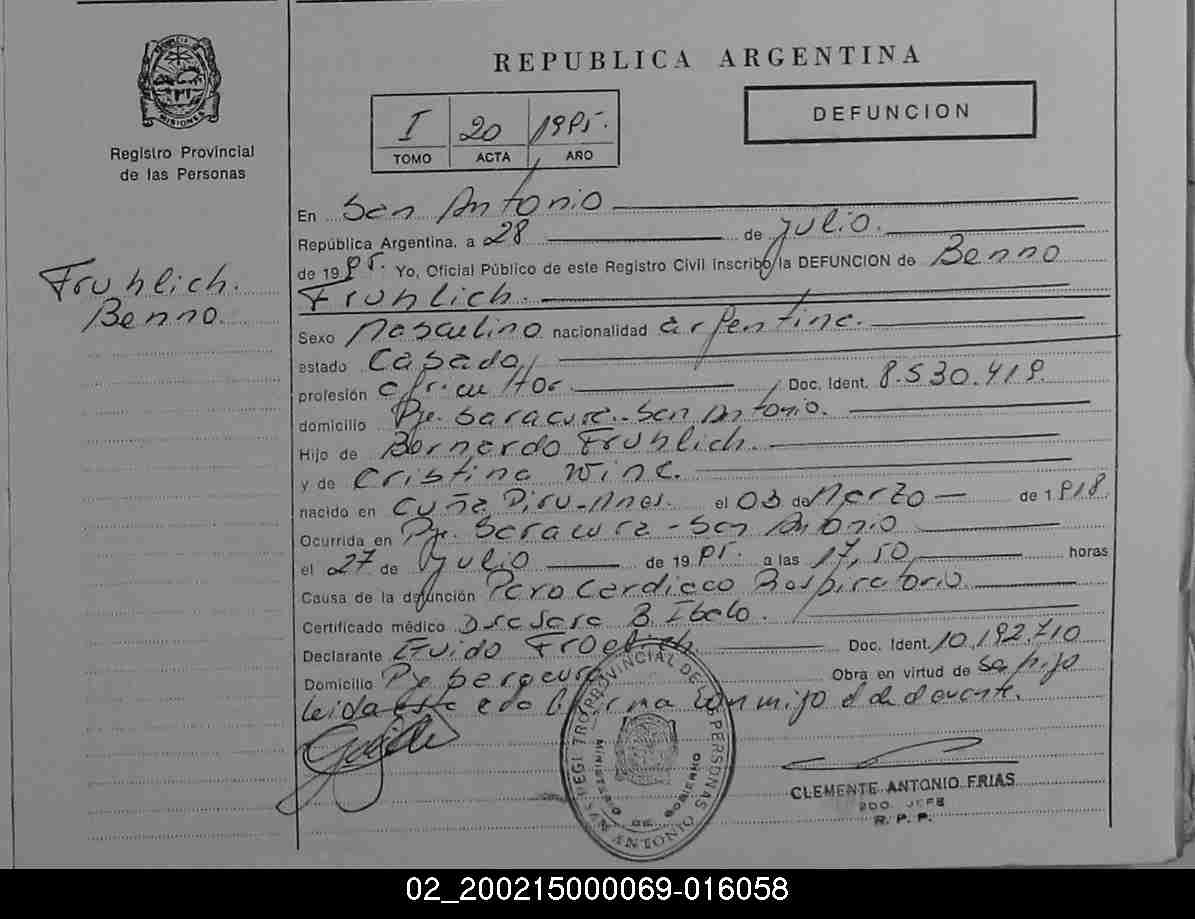 MISIONES
Registro Provincial
de las Personas
Fruhlich.
Benno
REPUBLICA ARGENTINA
I 20 1985.
TOMO ACTA AÑO
DEFUNCION
En San Antonio
República Argentina, a 28 de julio.
de 1985. Yo, Oficial Público de este Registro Civil inscribo la DEFUNCION de Benno
Fruhlich.
Sexo Masculino nacionalidad argentina.
estado Casado
profesión agricultor. Doc. Ident. 8.530.419.
domicilio Pje. Saracura San Antonio.
Hijo de Bernardo Fruhlich.
y de Cristina
nacido en Cuña Pirú-Mnes. el 03 de Marzo de 1.918.
Ocurrida en Pje. Saracura - San Antonio
el 27 de julio de 1985. a las 17,50 horas
Causa de la defunción Paro Cardiaco Respiratorio
Certificado médico
Declarante Guido Froelich Doc. Ident. 10.192.710
Domicilio Pje Saracura Obra en virtud de Se hijo
leida esta acta firma conmigo el declarante.
REGISTRO PROVINCIAL DE LAS PERSONAS
MINISTERIO DE GOBIERNO
SAN ANTONIO
CLEMENTE ANTONIO FRIAS
2DO. JEFE
R. P. P.
02_200215000069-016058